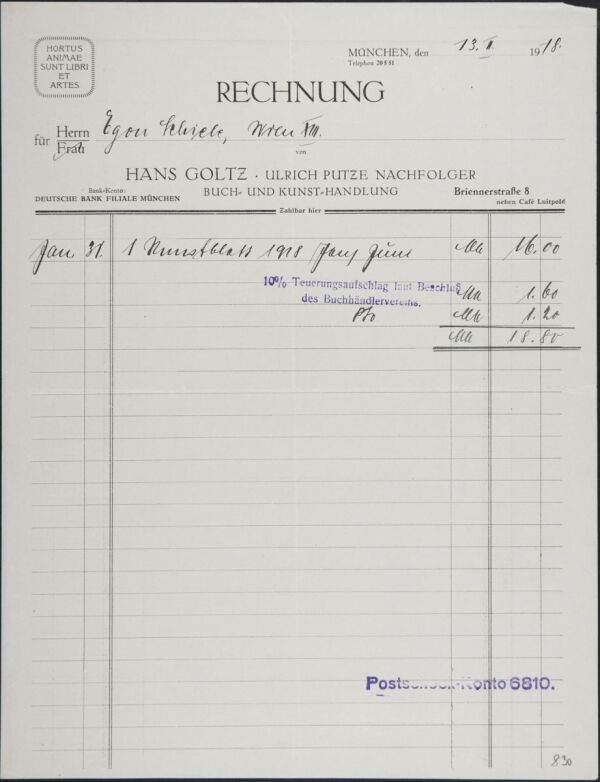 HORTUS
ANIMAE
SUNT LIBRI
ET
ARTES
MÜNCHEN, den 13. II. 1918.
Telephon 20551
RECHNUNG
für Herrn Egon Schiele, Wien XIII.
Frau
von
HANS GOLTZ · ULRICH PUTZE NACHFOLGER
BUCH- UND KUNST-HANDLUNG
Bank-Konto:
DEUTSCHE BANK FILIALE MÜNCHEN
Briennerstraße 8
neben Café Luitpold
Zahlbar hier
Jan 31. 1 Kunstblatt 1918 Jan/Juni Mk 16.00
10% Teuerungsaufschlag laut Beschluß
des Buchhändlervereins. Mk 1.60
Pto Mk 1.20
Mk 18.80
Postscheck-Konto 6810.
830